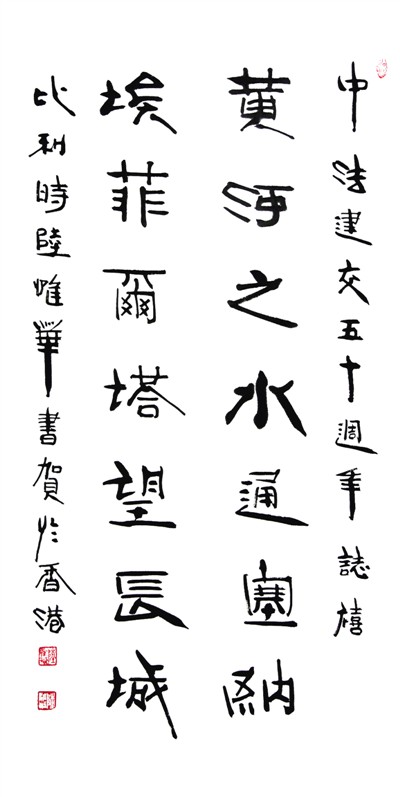 中法建交五十週年誌禧
黃河之水通塞納
埃菲爾塔望長城
比利時陸惟華書賀於香港